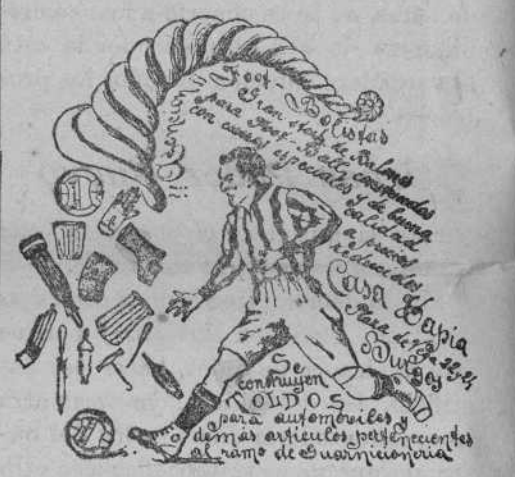 ¡¡Atención!!
Foot-Bolistas
Gran stock de Balones
para Foot-Ball construidos
con cueros especiales y de buena
calidad
a precios
reducidos
Casa Tapia
Plaza de Vega 22 y 24
Burgos
Se
construyen
TOLDOS
para automóviles y
demás artículos pertenecientes
al ramo de Guarnicionería